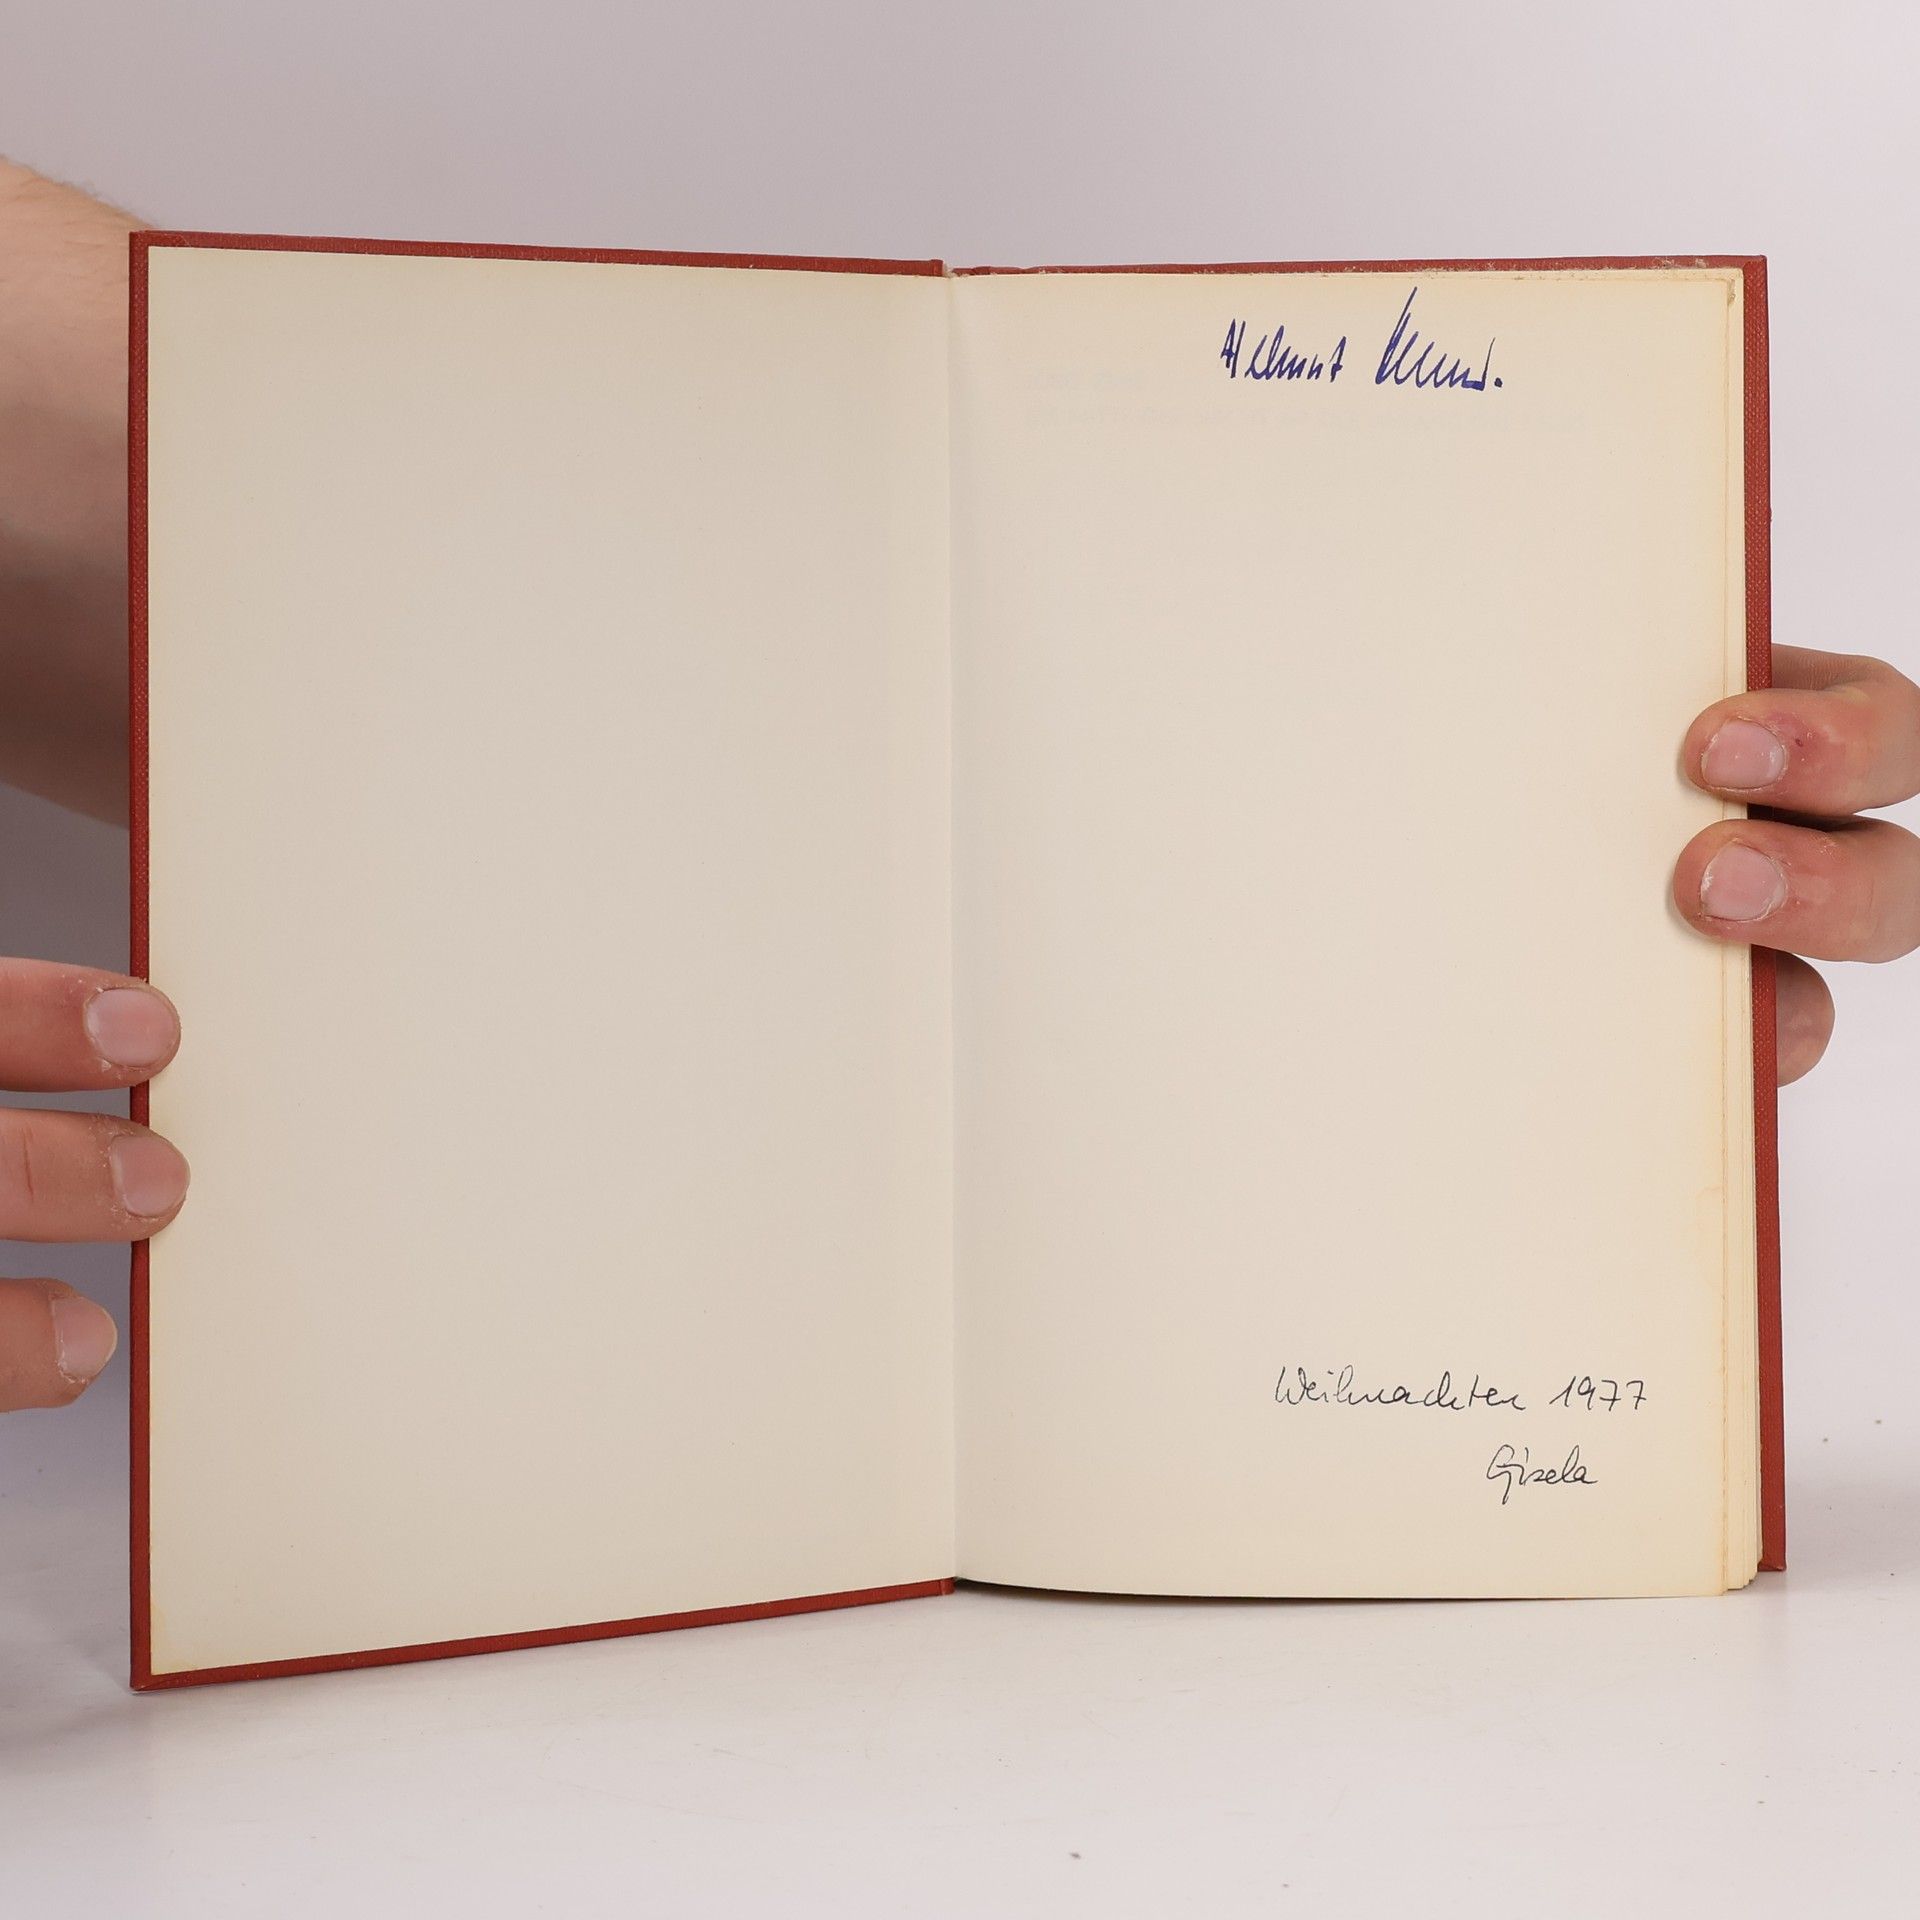 Helmut
Weihnachten 1977
Gisela